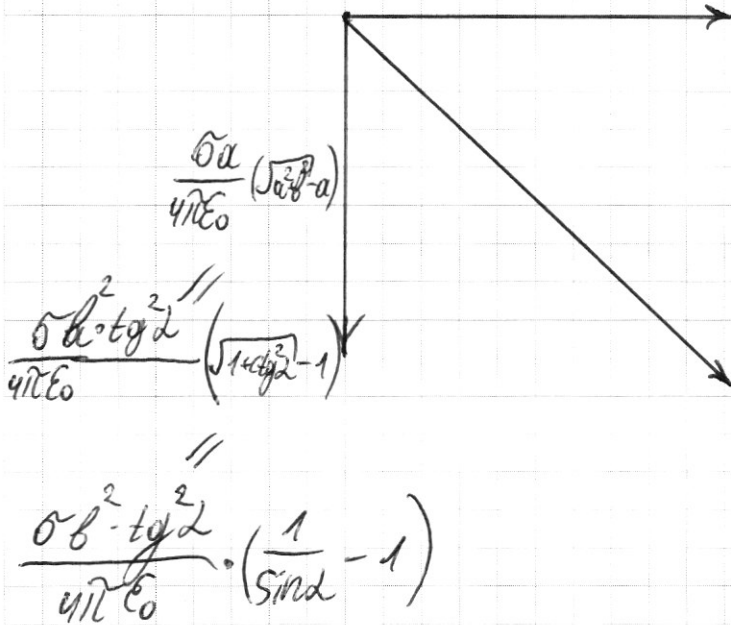 σa/4πε₀ (√a²+b² - a)
//
σb²·tg²α/4πε₀ (√1+ctg²α - 1)
//
σb²·tg²α/4πε₀ · (1/sinα - 1)